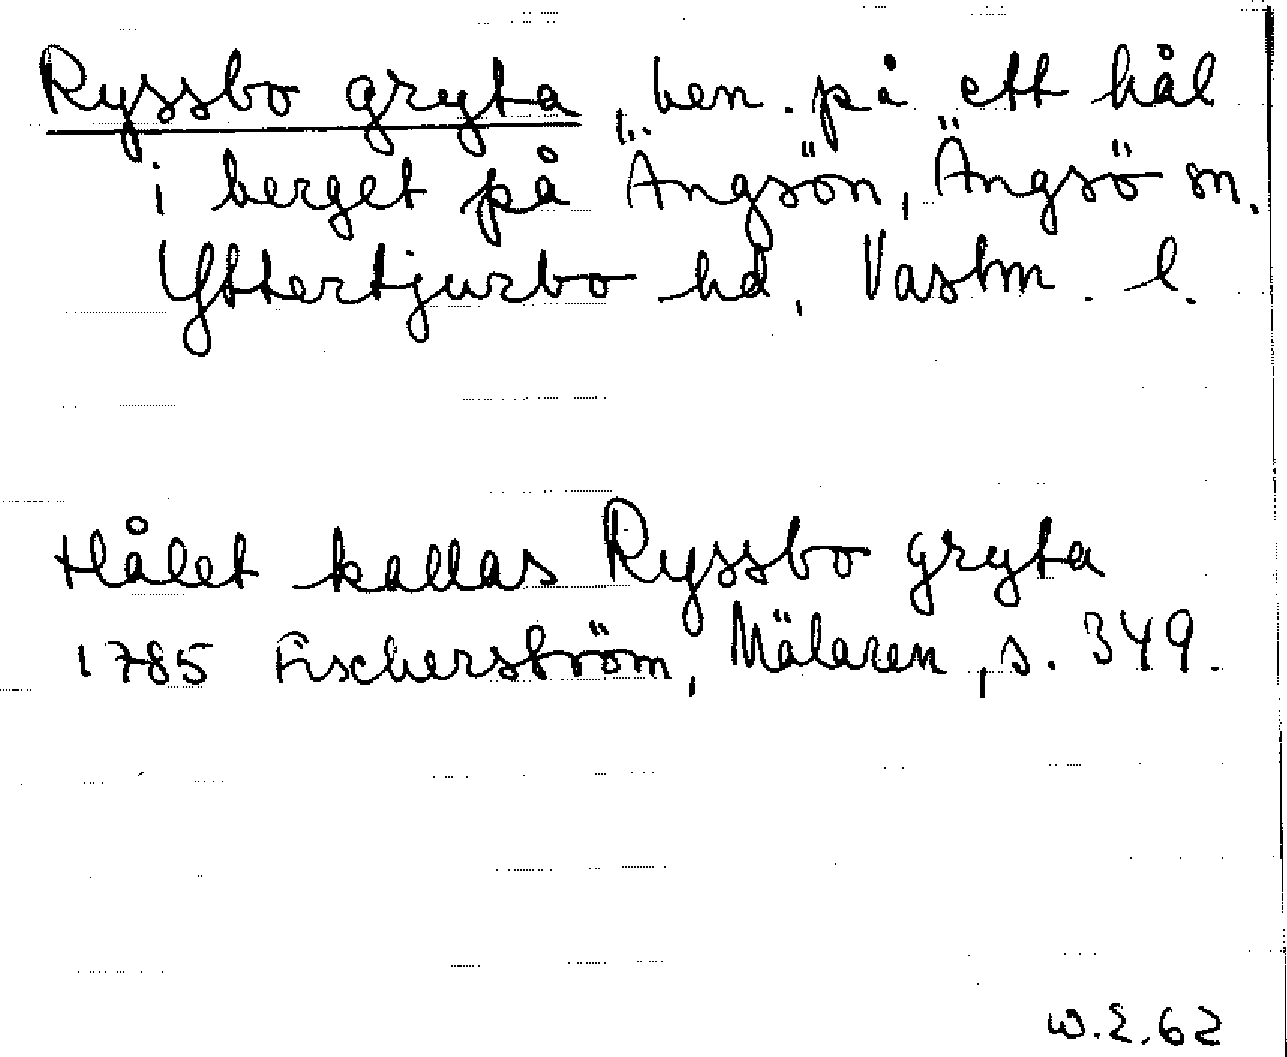 Ryssbo gryta, ben. på ett hål
i berget på Ängsön, Ängsö sn.
Yttertjurbo hd, Vastm. l.
Hålet kallas Ryssbo gryta
1785 Fischerström, Mälaren, s. 349.
W.E.62